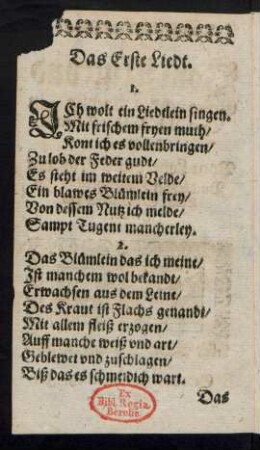 Das Erste Liedt.
1.
ICh wolt ein Liedtlein singen.
Mit frischem fryen muth/
Kont ich es vollenbringen/
Zu lob der Feder gudt/
Es steht im weitem Velde/
Ein blawes Blümlein frey/
Von dessem Nutz ich melde/
Sampt Tugent mancherley.
2.
Das Blümlein das ich meine/
Ist manchem wol bekandt/
Erwachsen aus dem Leine/
Des Kraut ist Flachs genandt/
Mit allem fleiß erzogen/
Auff manche weiß vnd art/
Geblewet vnd zuschlagen/
Biß das es schmeidich wart.
Das
Ex
Bibl. Regia
Berolin.